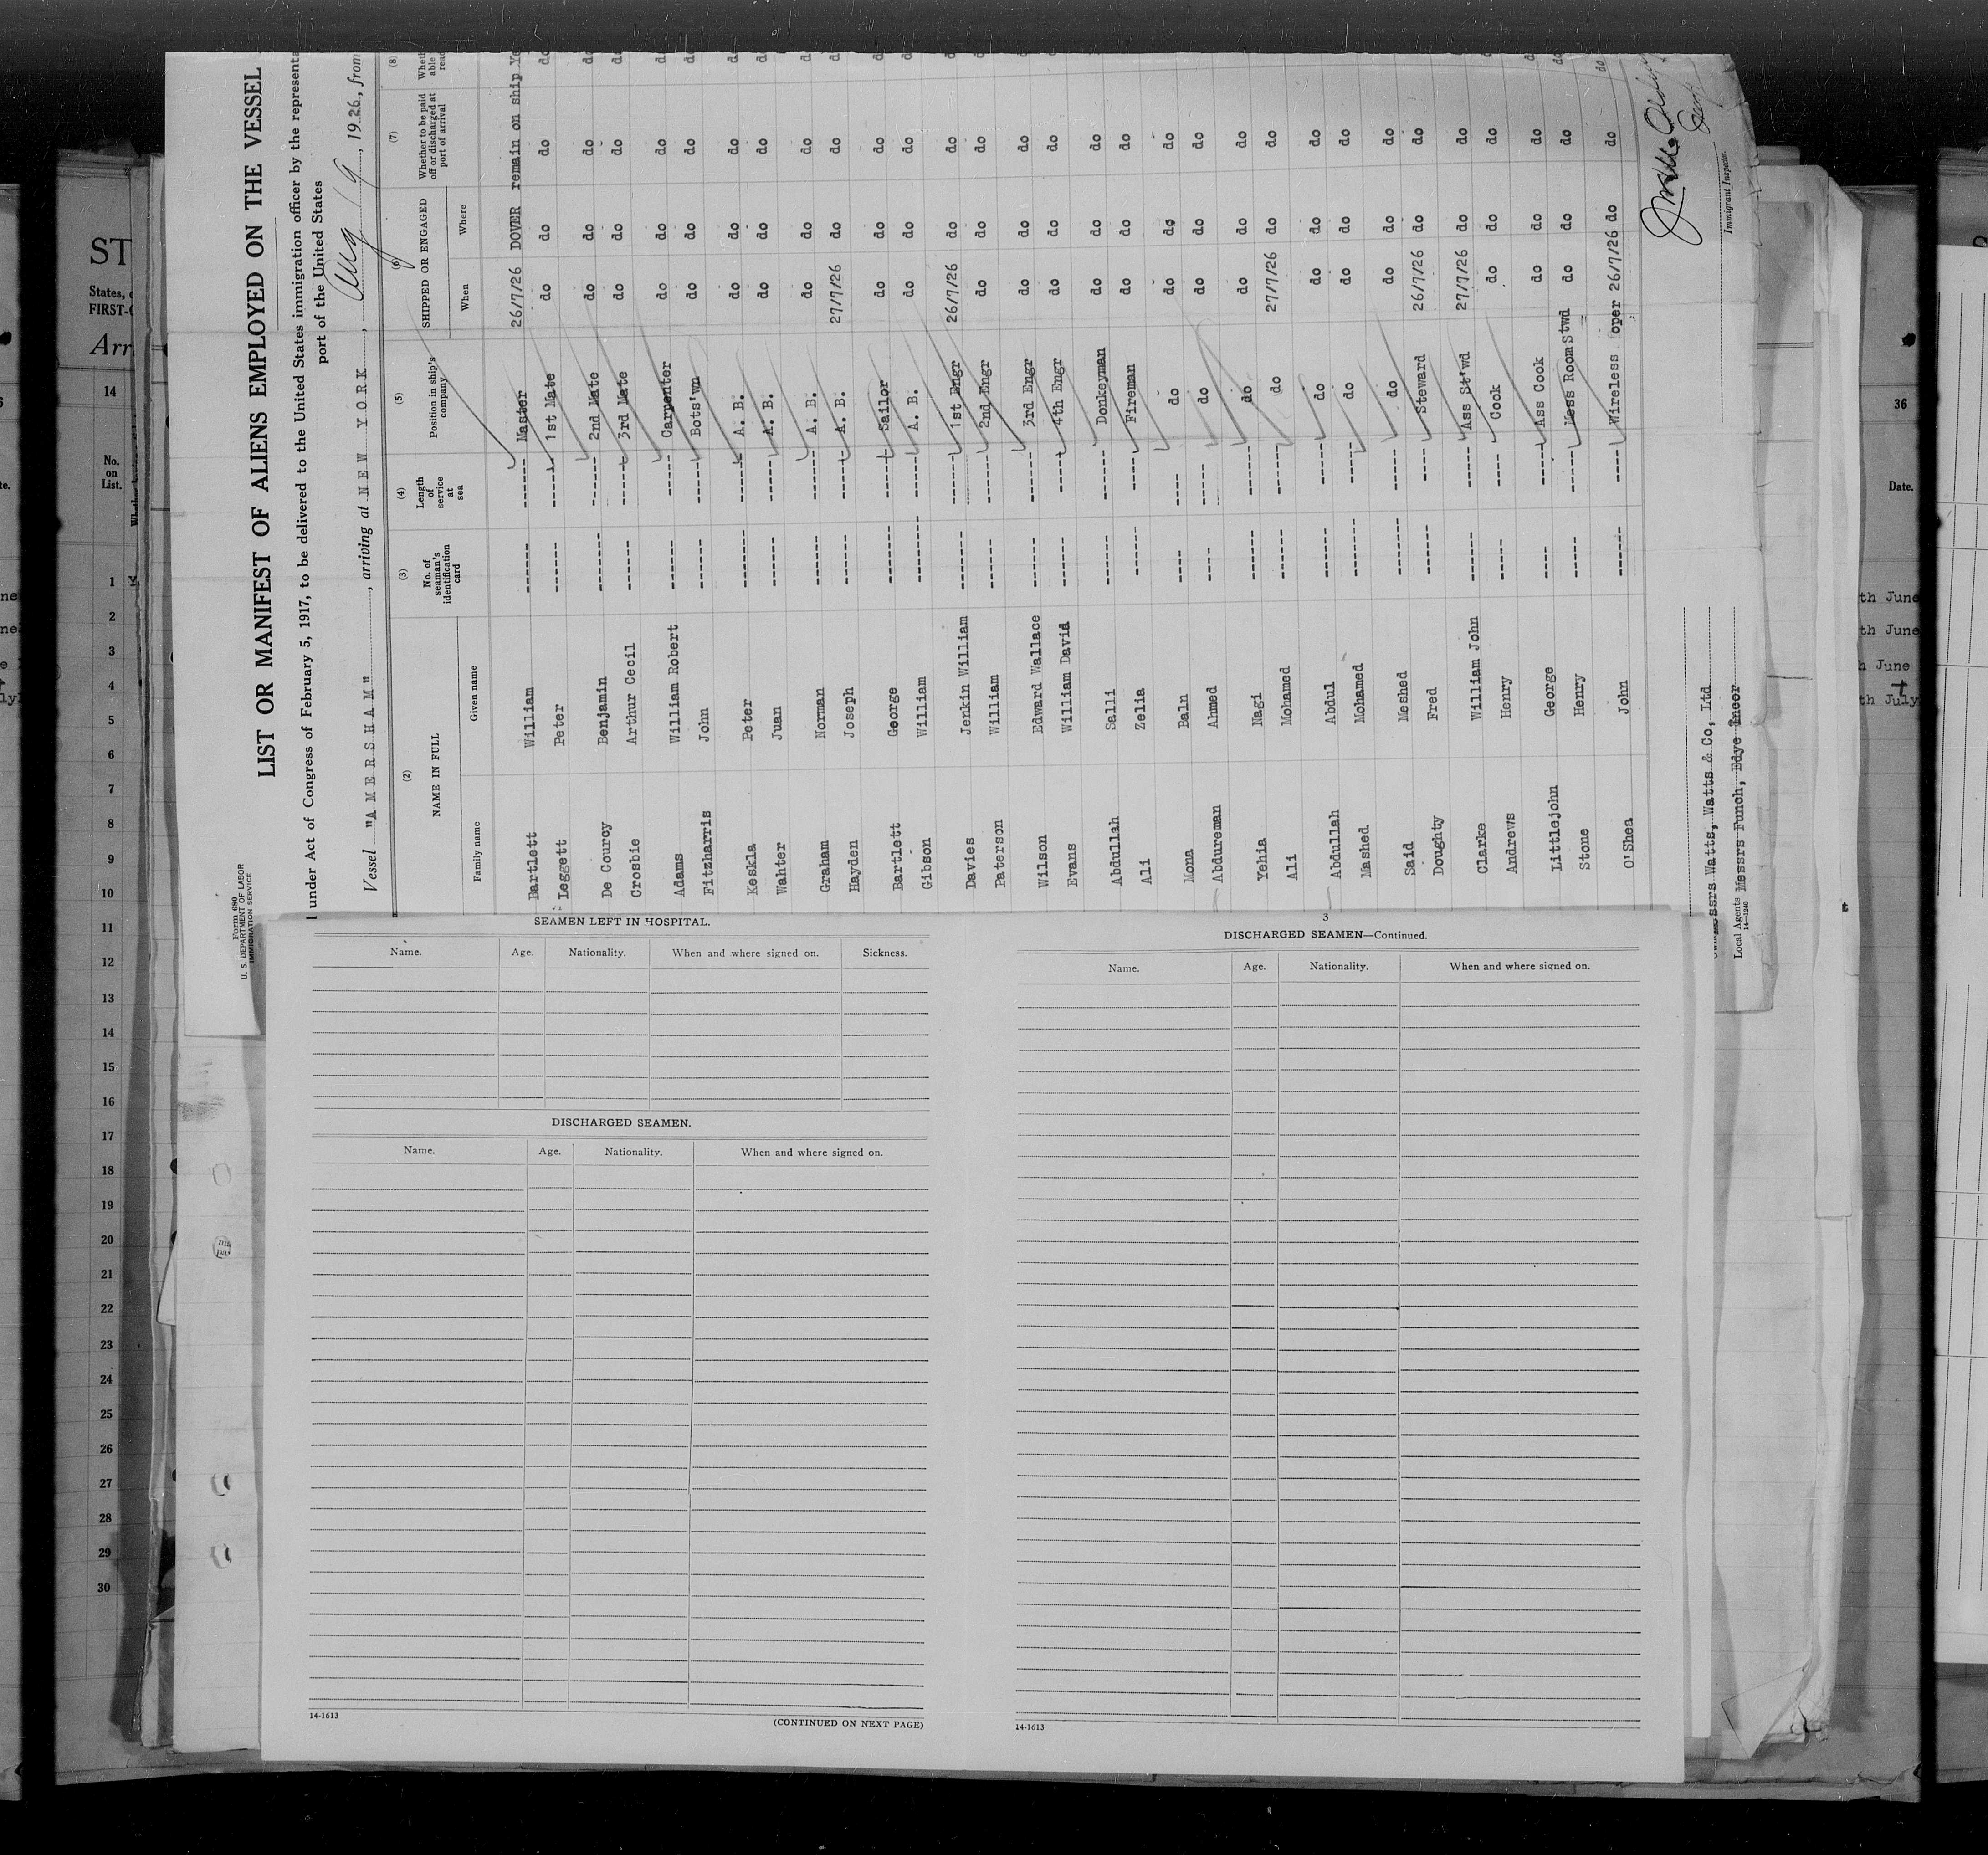 Form 680
U. S. DEPARTMENT OF LABOR
IMMIGRATION SERVICE
LIST OR MANIFEST OF ALIENS EMPLOYED ON THE VESSEL
under Act of Congress of February 5, 1917, to be delivered to the United States immigration officer by the represent
port of the United States
Vessel "AMERSHAM", arriving at NEW YORK, Aug 19, 1926, from
(2) (3) (4) (5) (6) (7) (8)
NAME IN FULL
Family name Given name
No. of seaman's identification card
Length of service at sea
Position in ship's company
SHIPPED OR ENGAGED
When Where
Whether to be paid off or discharged at port of arrival
Bartlett William ------ ------ Master 26/7/26 DOVER remain on ship
Leggett Peter ------ ------ 1st Mate do do do
De Courcy Benjamin ------ ------ 2nd Mate do do do
Crosbie Arthur Cecil ------ ------ 3rd Mate do do do
Adams William Robert ------ ------ Carpenter do do do
Fitzharris John ------ ------ Bots'wn do do do
Keskla Peter ------ ------ A. B. do do do
Wahter Juan ------ ------ A. B. do do do
Graham Norman ------ ------ A. B. do do do
Hayden Joseph ------ ------ A. B. 27/7/26 do do
Bartlett George ------ ------ Sailor do do do
Gibson William ------ ------ A. B. do do do
Davies Jenkin William ------ ------ 1st Engr 26/7/26 do do
Paterson William ------ ------ 2nd Engr do do do
Wilson Edward Wallace ------ ------ 3rd Engr do do do
Evans William David ------ ------ 4th Engr do do do
Abdullah Salli ------ ------ Donkeyman do do do
Ali Zelia ------ ------ Fireman do do do
Mona Baln ---- ---- do do do do
Abdureman Ahmed ---- ---- do do do do
Yehia Nagi ------ ------ do do do do
Ali Mohamed ------ ------ do 27/7/26 do do
Abdullah Abdul ------ ------ do do do do
Mashed Mohamed ------ ------ do do do do
Said Meshed ------ ------ do do do do
Doughty Fred ------ ------ Steward 26/7/26 do do
Clarke William John ------ ------ Ass St'wd 27/7/26 do do
Andrews Henry ---- ---- Cook do do do
Littlejohn George ---- ---- Ass Cook do do do
Stone Henry ----- ----- Mess Room Stwd do do do
O'Shea John ------ ------ Wireless Oper 26/7/26 do do
Immigrant Inspector.
Messrs Watts, Watts & Co, Ltd
Local Agents Messrs Funch, Edye Incor
14—1240
SEAMEN LEFT IN HOSPITAL.
Name. Age. Nationality. When and where signed on. Sickness.
DISCHARGED SEAMEN.
Name. Age. Nationality. When and where signed on.
14-1613
(CONTINUED ON NEXT PAGE)
3
DISCHARGED SEAMEN—Continued.
Name. Age. Nationality. When and where signed on.
14-1613
ST
States,
FIRST-
Arr
14
No. on List.
1
2
3
4
5
6
7
8
9
10
11
12
13
14
15
16
17
18
19
20
21
22
23
24
25
26
27
28
29
30
36
Date.
th June
th June
h June
th July